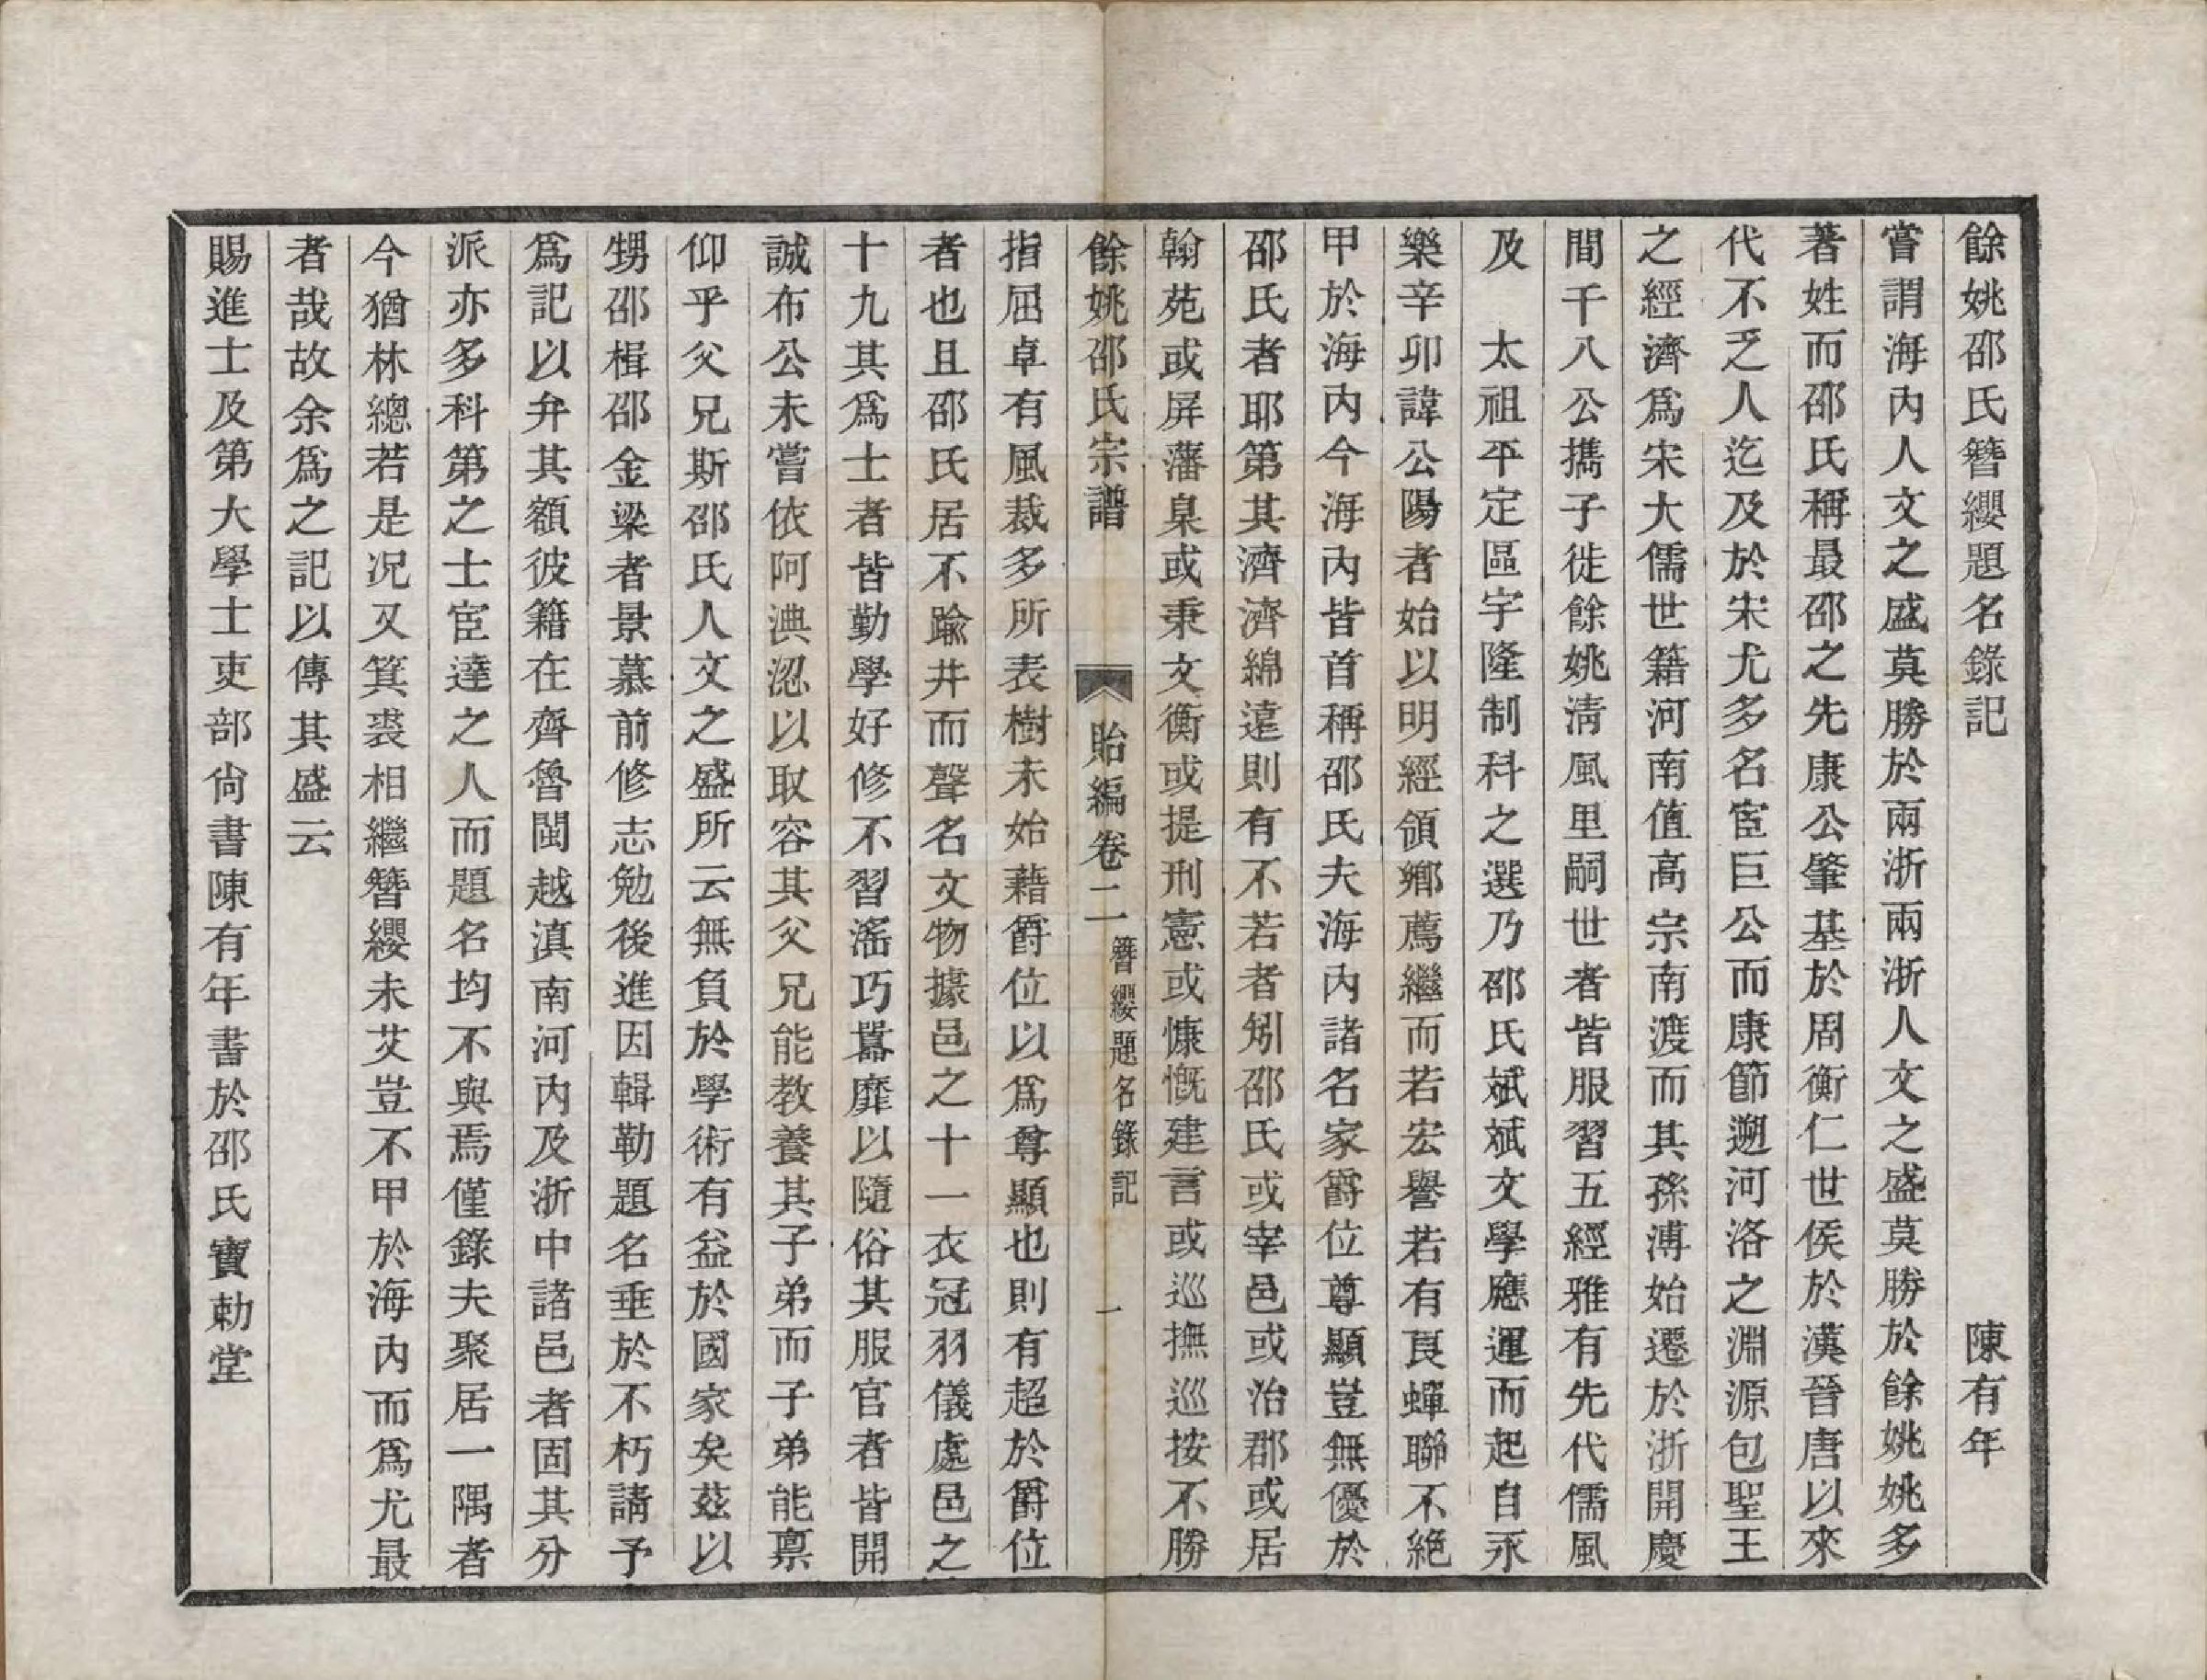 餘姚邵氏簪纓題名錄記　陳有年
嘗謂海內人文之盛莫勝於兩浙兩浙人文之盛莫勝於餘姚姚多
著姓而邵氏稱最邵之先康公肇基於周衡仁世侯於漢晉唐以來
代不乏人迄及於宋尤多名宦巨公而康節遡河洛之淵源包聖王
之經濟爲宋大儒世籍河南值高宗南渡而其孫溥始遷於浙開慶
間千八公攜子徙餘姚淸風里嗣世者皆服習五經雅有先代儒風
及　太祖平定區宇隆制科之選乃邵氏斌斌文學應運而起自永
樂辛卯諱公陽者始以明經領鄉薦繼而若宏譽若有良蟬聯不絕
甲於海內今海內皆首稱邵氏夫海內諸名家爵位尊顯豈無優於
邵氏者耶第其濟濟綿遠則有不若者矧邵氏或宰邑或治郡或居
翰苑或屏藩臬或秉文衡或提刑憲或慷慨建言或巡撫巡按不勝
餘姚邵氏宗譜　貽編卷二　簪纓題名錄記　一
指屈卓有風裁多所表樹未始藉爵位以爲尊顯也則有超於爵位
者也且邵氏居不踰井而聲名文物據邑之十一衣冠羽儀處邑之
十九其爲士者皆勤學好修不習滛巧囂靡以隨俗其服官者皆開
誠布公未嘗依阿淟涊以取容其父兄能教養其子弟而子弟能禀
仰乎父兄斯邵氏人文之盛所云無負於學術有益於國家矣茲以
甥邵楫邵金梁者景慕前修志勉後進因輯勒題名垂於不朽請予
爲記以弁其額彼籍在齊魯閩越滇南河內及浙中諸邑者固其分
派亦多科第之士宦達之人而題名均不與焉僅錄夫聚居一隅者
今猶林總若是况又箕裘相繼簪纓未艾豈不甲於海內而爲尤最
者哉故余爲之記以傳其盛云
賜進士及第大學士吏部尙書陳有年書於邵氏寶勅堂